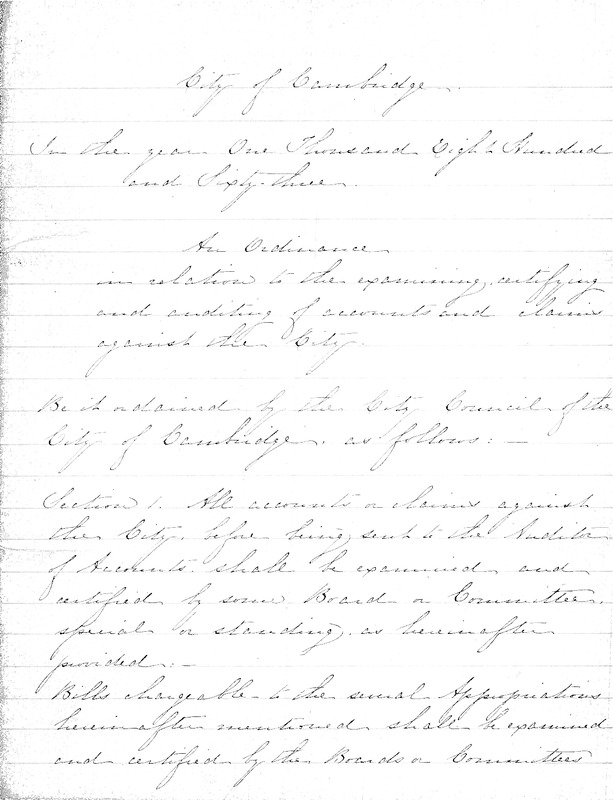 City of Cambridge.
In the year One Thousand Eight Hundred
and Sixty-three.
An Ordinance
in relation to the examining, certifying
and auditing of accounts and claims
against the City.
Be it ordained by the City Council of the
City of Cambridge, as follows: —
Section 1. All accounts or claims against
the City, before being sent to the Auditor
of Accounts, shall be examined and
certified by some Board or Committee,
special or standing, as hereinafter
provided: —
Bills chargeable to the several Appropriations
hereinafter mentioned shall be examined
and certified by the Boards or Committees